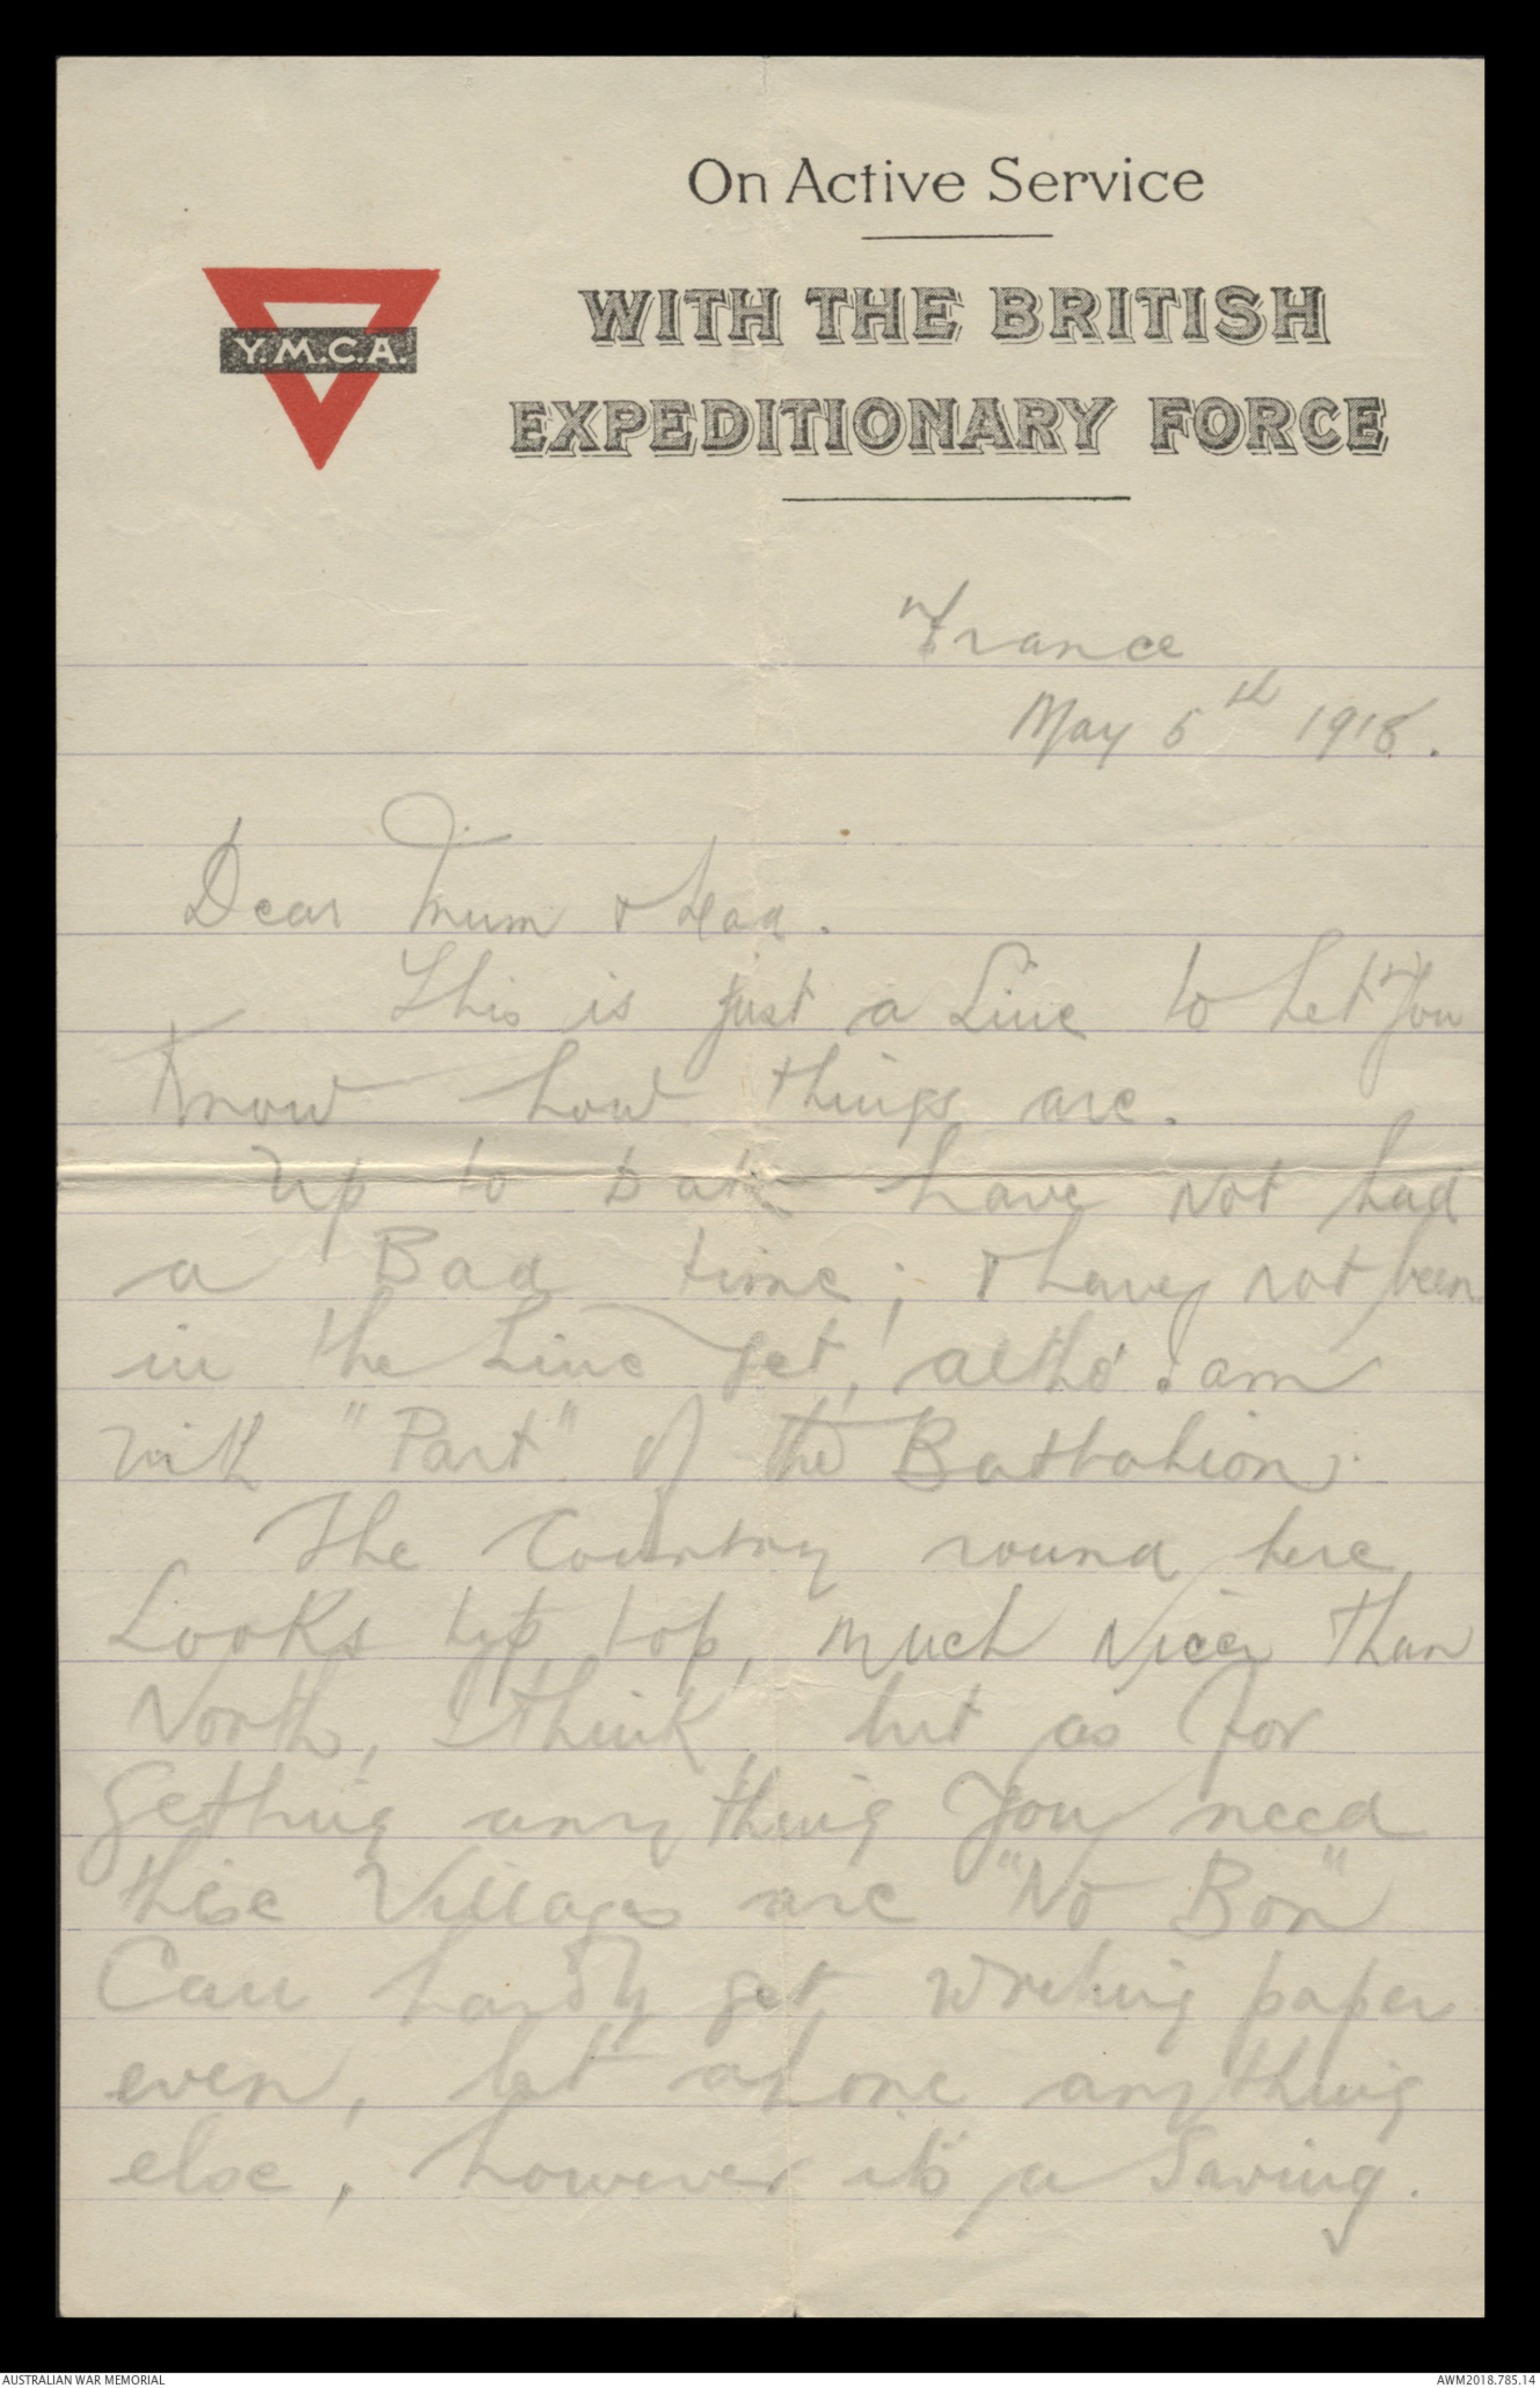 On Active Service
Y.M.C.A.
WITH THE BRITISH
EXPEDITIONARY FORCE
France
May 5th 1918.
Dear Mum & Dad.
This is just a Line to Let You
Know how things are.
Up to Date have Not had
a Bad time; & have not been
in the Line Yet, altho' I am
with "Part" of the Battalion.
The Country round here
Looks tip top, much Nicer Than
North, I think, but as for
Getting any thing You need
these Villages are "No Bon"
Can hardly get writing paper
even, let alone any thing
else, however its a Saving.
AUSTRALIAN WAR MEMORIAL
AWM2018.785.14